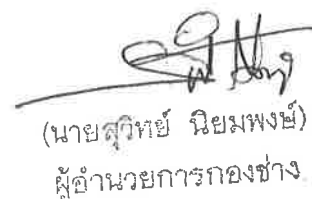 (นายสุวิทย์ นิยมพงษ์)
ผู้อำนวยการกองช่าง